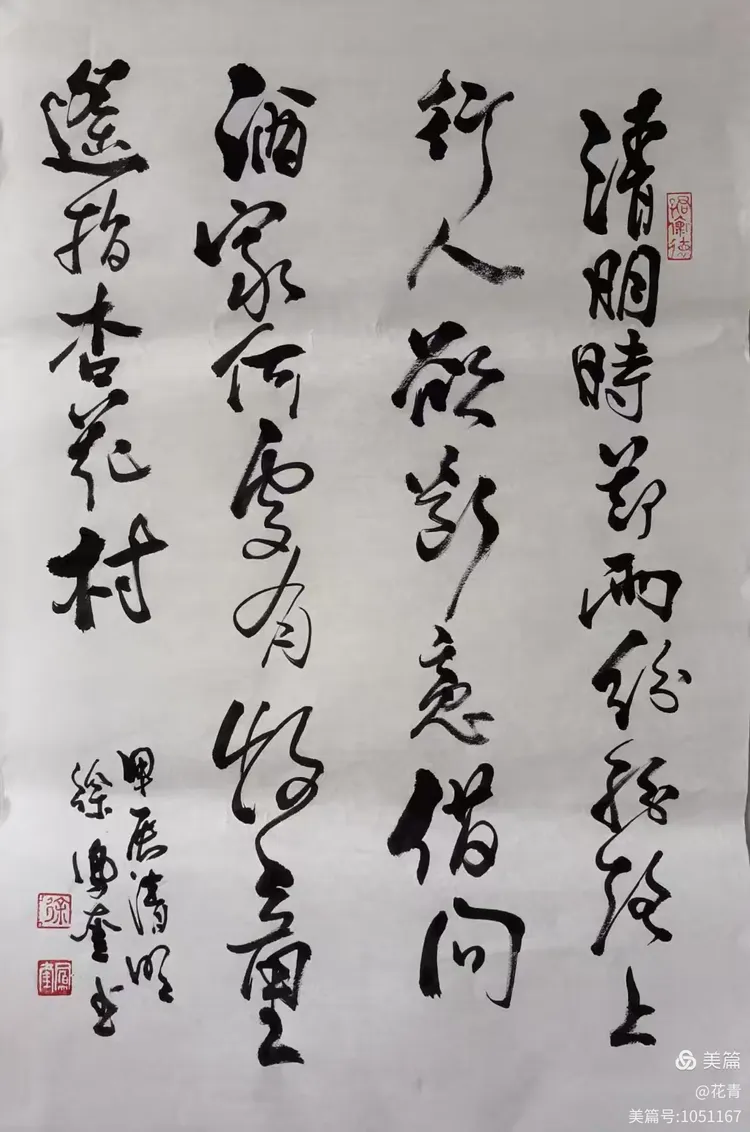 清明時節雨紛紛路上
行人欲斷意借問
酒家何處有牧童
遙指杏花村
甲辰清明
徐鳳奎书
徐
美篇
@花青
美篇号:1051167